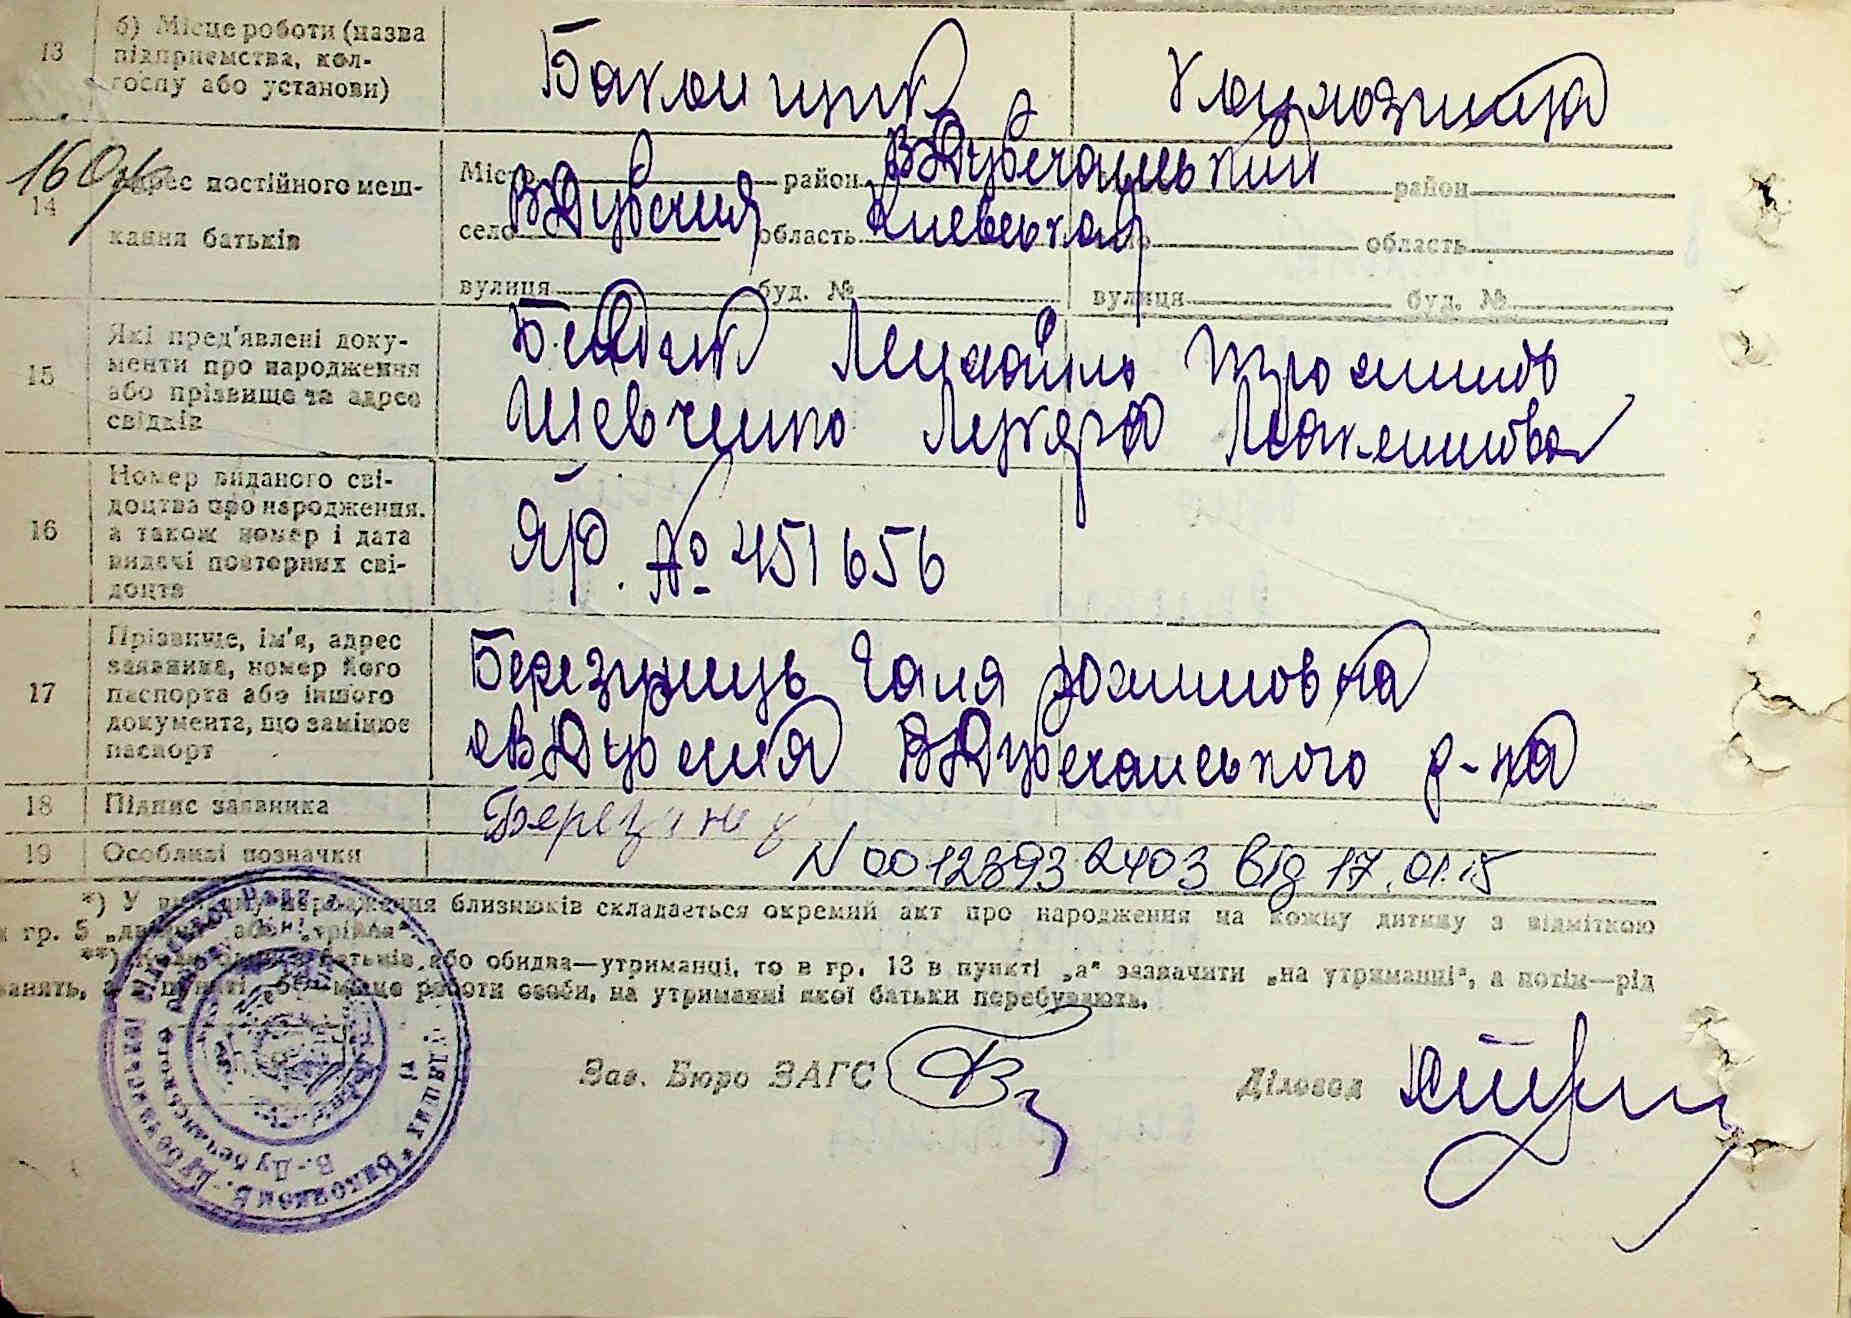 13 б) Місце роботи (назва
підприємства, кол-
госпу або установи)
Бакол цик
Колхозница
160
14 Адрес постійного меш-
кання батьків
Місто район ВДубечанський район
село ВДубечня область Киевськая область
вулиця буд. № вулиця буд. №
15 Які пред'явлені доку-
менти про народження
або прізвище та адрес
свідків
Михайло
Шевченко
16 Номер виданого сві-
доцтва про народження,
а також номер і дата
видачі повторних сві-
доцтв
ЯР. № 451656
17 Прізвище, ім'я, адрес
заявника, номер його
паспорта або іншого
документа, що замінює
паспорт
Березинець Галя
сВДубечня ВДубечанського р-на
18 Підпис заявника
Березинец
19 Особливі позначки
N 0012393 2403 від 17.01.15
*) У народження близнюків складається окремий акт про народження на кожну дитину з відміткою
гр. 5 „двійня" або „трійня".
**) батьків або обидва—утриманці, то в гр. 13 в пункті „а" зазначити „на утриманні", а потім—рід
занять, а в пункті „б" місце роботи особи, на утриманні якої батьки перебувають.
Зав. Бюро ЗАГС
Діловод